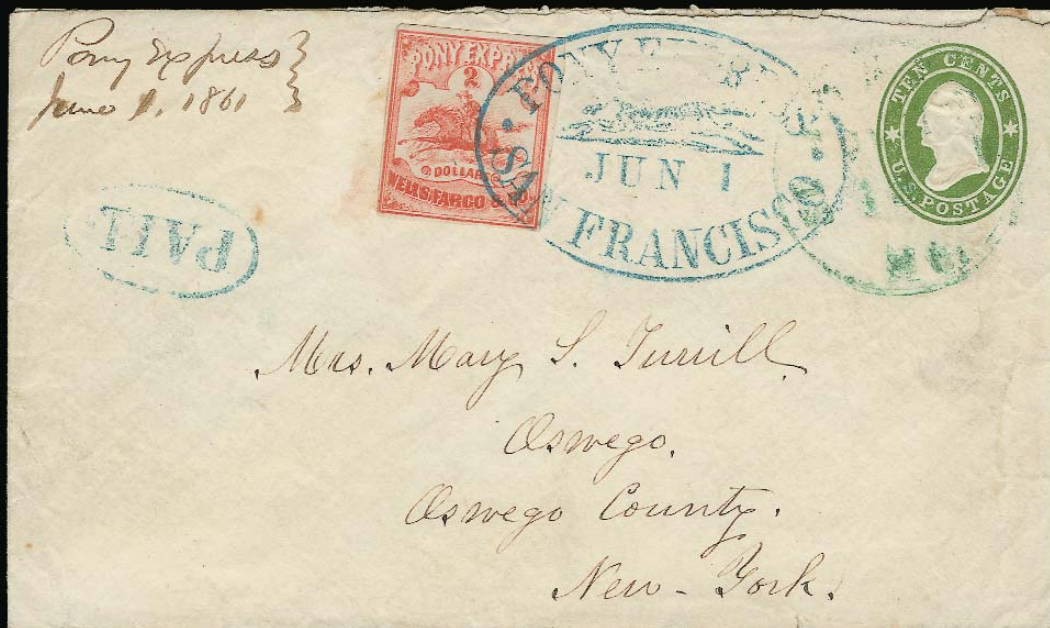 Pony Express
June 1, 1861
PONY EXPRESS
2
DOLLARS
WELLS, FARGO & CO.
PONY EXPRESS
JUN 1
SAN FRANCISCO
TEN CENTS
U.S. POSTAGE
PAID
Mrs. Mary S. Turrill
Oswego.
Oswego County.
New-York.